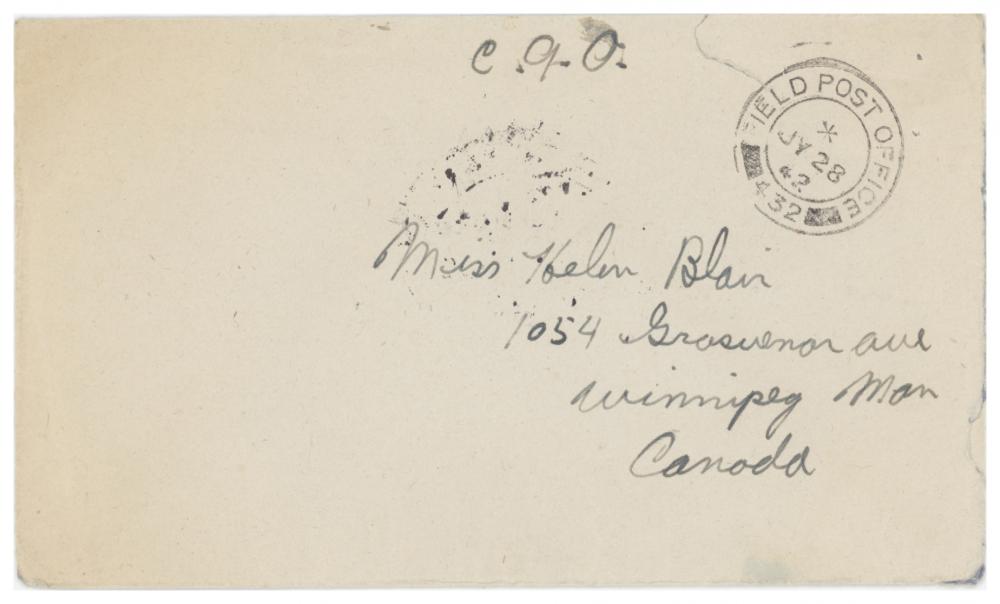 C.A.O.
FIELD POST OFFICE
*
JY 28
42
432
Miss Helen Blair
1054 Grosvenor ave
Winnipeg Man
Canada